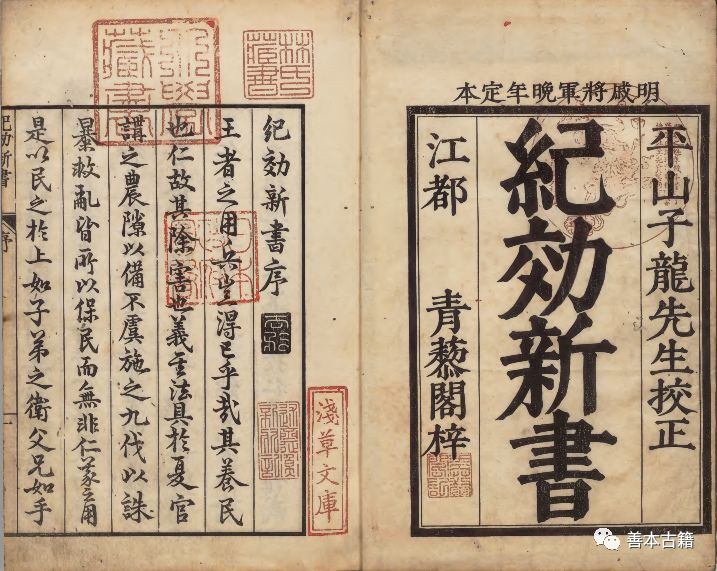 明戚將軍晚年定本
平山子龍先生挍正
紀効新書
江都 青藜閣梓
紀効新書序
王者之用兵豈得已乎哉其養民
也仁故其除害也義至法具於夏官
講之農隙以備不虞施之九伐以誅
暴救亂皆所以保民而無非仁義之用
是以民之於上如子弟之衛父兄如手
紀効新書
序
林氏藏書
淺草文庫
善本古籍